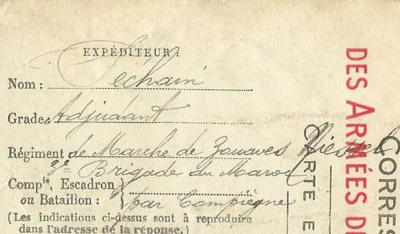 EXPÉDITEUR:
Nom: Péchain
Grade: Adjudant
Régiment de Marche de Zouaves
3e Brigade du Maroc
Compie, Escadron
ou Bataillon: par Compiègne
(Les indications ci-dessus sont à reproduire
dans l'adresse de la réponse.)
DES ARMÉES D
CORRES
CARTE E